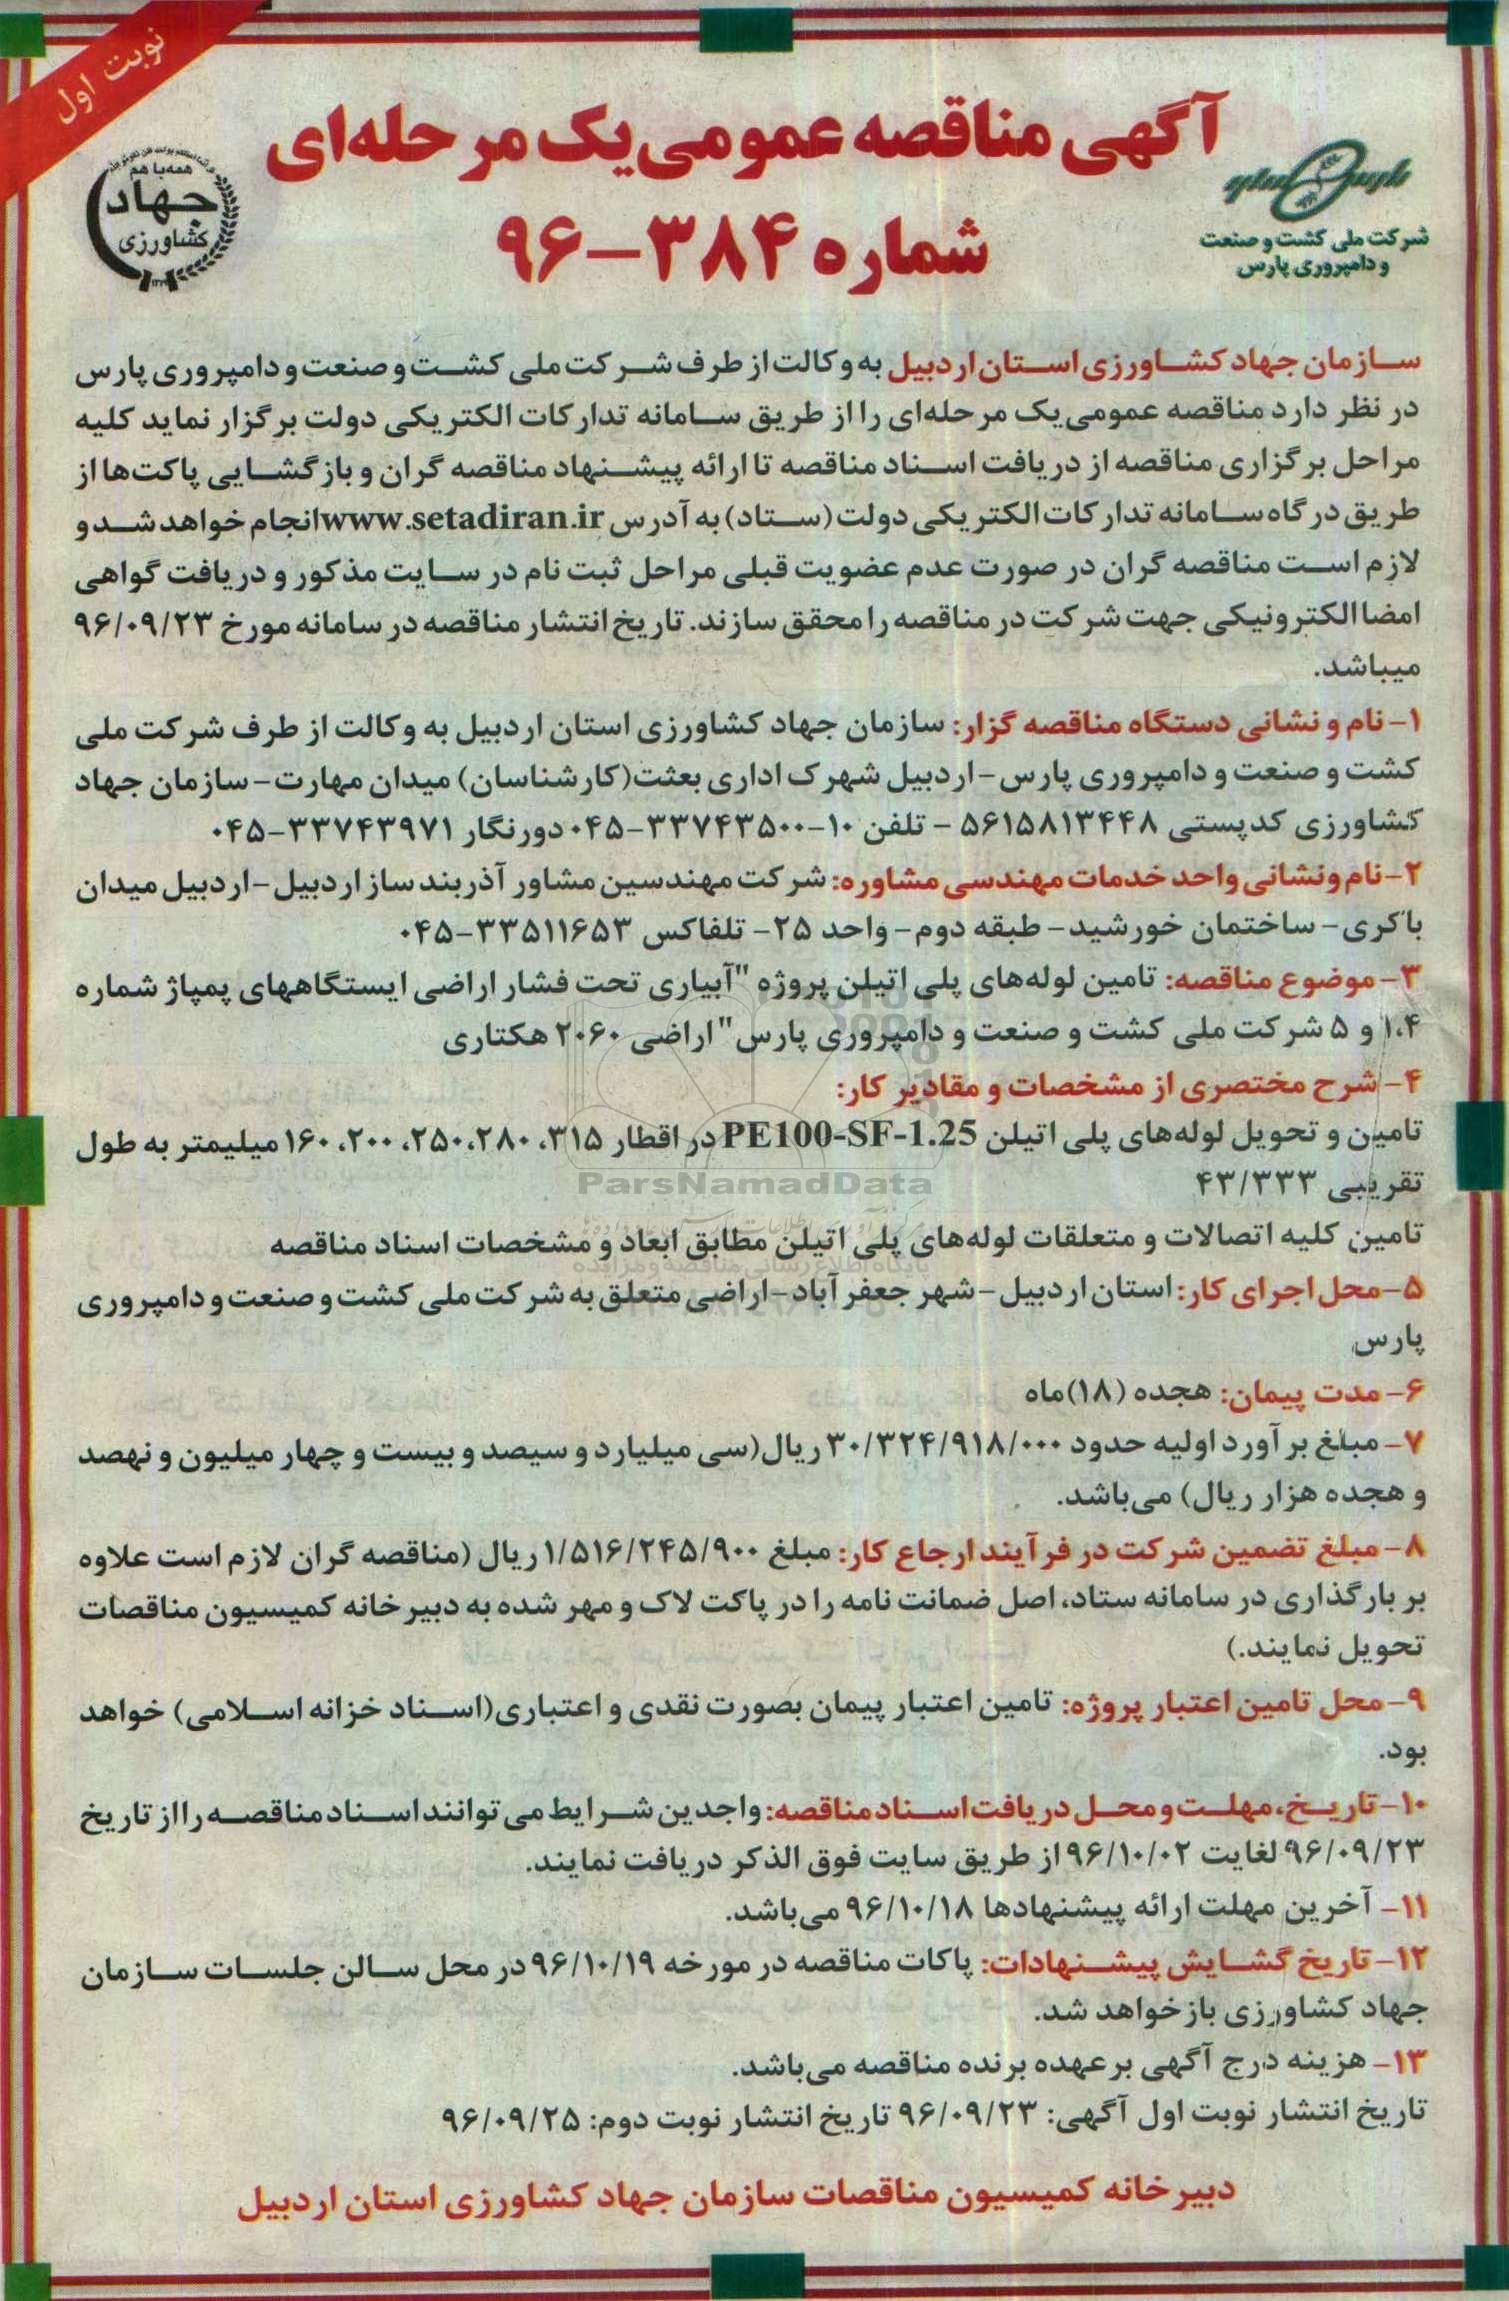 نوبت اول
آگهی مناقصه عمومی یک مرحله‌ای
شماره ۳۸۴-۹۶
همه با هم
جهاد
کشاورزی
شرکت ملی کشت و صنعت
و دامپروری پارس
سازمان جهاد کشاورزی استان اردبیل به وکالت از طرف شرکت ملی کشت و صنعت و دامپروری پارس
در نظر دارد مناقصه عمومی یک مرحله‌ای را از طریق سامانه تدارکات الکتریکی دولت برگزار نماید کلیه
مراحل برگزاری مناقصه از دریافت اسناد مناقصه تا ارائه پیشنهاد مناقصه گران و بازگشایی پاکت‌ها از
طریق درگاه سامانه تدارکات الکتریکی دولت (ستاد) به آدرس www.setadiran.ir انجام خواهد شد و
لازم است مناقصه گران در صورت عدم عضویت قبلی مراحل ثبت نام در سایت مذکور و دریافت گواهی
امضا الکترونیکی جهت شرکت در مناقصه را محقق سازند. تاریخ انتشار مناقصه در سامانه مورخ ۹۶/۰۹/۲۳
میباشد.
۱- نام و نشانی دستگاه مناقصه گزار: سازمان جهاد کشاورزی استان اردبیل به وکالت از طرف شرکت ملی
کشت و صنعت و دامپروری پارس- اردبیل شهرک اداری بعثت(کارشناسان) میدان مهارت- سازمان جهاد
کشاورزی کدپستی ۵۶۱۵۸۱۳۴۴۸ - تلفن ۱۰-۳۳۷۴۳۵۰۰-۰۴۵ دورنگار ۳۳۷۴۳۹۷۱-۰۴۵
۲- نام ونشانی واحد خدمات مهندسی مشاوره: شرکت مهندسین مشاور آذربند ساز اردبیل- اردبیل میدان
باکری- ساختمان خورشید- طبقه دوم- واحد ۲۵- تلفاکس ۳۳۵۱۱۶۵۳-۰۴۵
۳- موضوع مناقصه: تامین لوله‌های پلی اتیلن پروژه "آبیاری تحت فشار اراضی ایستگاههای پمپاژ شماره
۱،۴ و ۵ شرکت ملی کشت و صنعت و دامپروری پارس" اراضی ۲۰۶۰ هکتاری
۴- شرح مختصری از مشخصات و مقادیر کار:
تامین و تحویل لوله‌های پلی اتیلن PE100-SF-1.25 در اقطار ۳۱۵، ۲۸۰،۲۵۰، ۲۰۰، ۱۶۰ میلیمتر به طول
تقریبی ۴۳/۳۳۳
ParsNamadData
تامین کلیه اتصالات و متعلقات لوله‌های پلی اتیلن مطابق ابعاد و مشخصات اسناد مناقصه
پایگاه اطلاع رسانی مناقصه و مزایده
۵- محل اجرای کار: استان اردبیل- شهر جعفر آباد- اراضی متعلق به شرکت ملی کشت و صنعت و دامپروری
پارس
۶- مدت پیمان: هجده (۱۸)ماه
۷- مبلغ برآورد اولیه حدود ۳۰/۳۲۴/۹۱۸/۰۰۰ ریال(سی میلیارد و سیصد و بیست و چهار میلیون و نهصد
و هجده هزار ریال) می‌باشد.
۸- مبلغ تضمین شرکت در فرآیند ارجاع کار: مبلغ ۱/۵۱۶/۲۴۵/۹۰۰ ریال (مناقصه گران لازم است علاوه
بر بارگذاری در سامانه ستاد، اصل ضمانت نامه را در پاکت لاک و مهر شده به دبیرخانه کمیسیون مناقصات
تحویل نمایند.)
۹- محل تامین اعتبار پروژه: تامین اعتبار پیمان بصورت نقدی و اعتباری(اسناد خزانه اسلامی) خواهد
بود.
۱۰- تاریخ، مهلت و محل دریافت اسناد مناقصه: واجدین شرایط می توانند اسناد مناقصه را از تاریخ
۹۶/۰۹/۲۳ لغایت ۹۶/۱۰/۰۲ از طریق سایت فوق الذکر دریافت نمایند.
۱۱- آخرین مهلت ارائه پیشنهادها ۹۶/۱۰/۱۸ می‌باشد.
۱۲- تاریخ گشایش پیشنهادات: پاکات مناقصه در مورخه ۹۶/۱۰/۱۹ در محل سالن جلسات سازمان
جهاد کشاورزی باز خواهد شد.
۱۳- هزینه درج آگهی برعهده برنده مناقصه می‌باشد.
تاریخ انتشار نوبت اول آگهی: ۹۶/۰۹/۲۳ تاریخ انتشار نوبت دوم: ۹۶/۰۹/۲۵
دبیرخانه کمیسیون مناقصات سازمان جهاد کشاورزی استان اردبیل